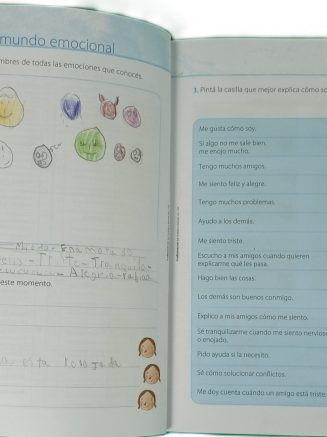 mundo emocional
mbres de todas las emociones que conocés.
Miedo- Enamorado
Triste - Tranquilo -
Alegria - rabioso
este momento.
esta
3. Pintá la casilla que mejor explica cómo so
Me gusta cómo soy.
Si algo no me sale bien,
me enojo mucho.
Tengo muchos amigos.
Me siento feliz y alegre.
Tengo muchos problemas.
Ayudo a los demás.
Me siento triste.
Escucho a mis amigos cuando quieren
explicarme qué les pasa.
Hago bien las cosas.
Los demás son buenos conmigo.
Explico a mis amigos cómo me siento.
Sé tranquilizarme cuando me siento nervios
o enojado.
Pido ayuda si la necesito.
Sé cómo solucionar conflictos.
Me doy cuenta cuándo un amigo está triste